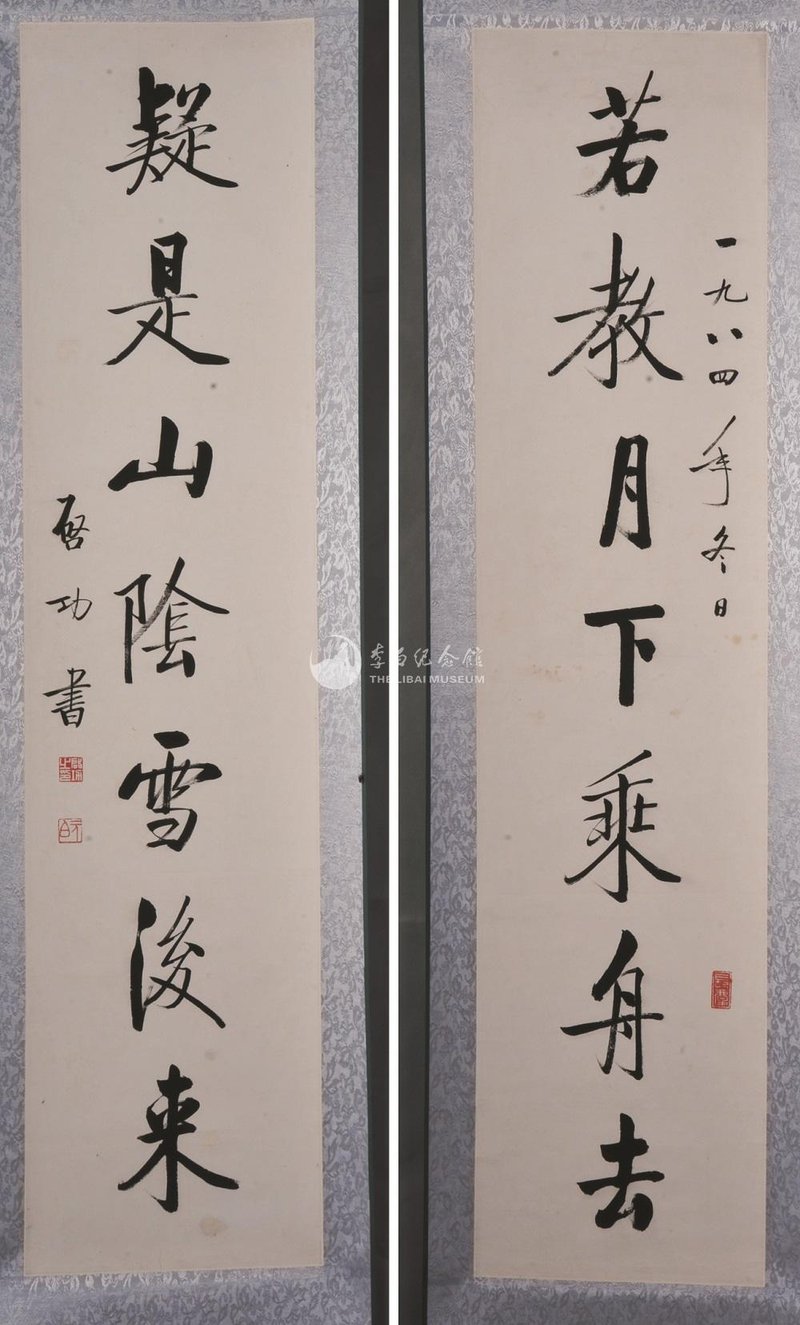 一九八四年冬日
若教月下乘舟去
疑是山陰雪後来
啓功書
李白纪念馆
THE LIBAI MUSEUM